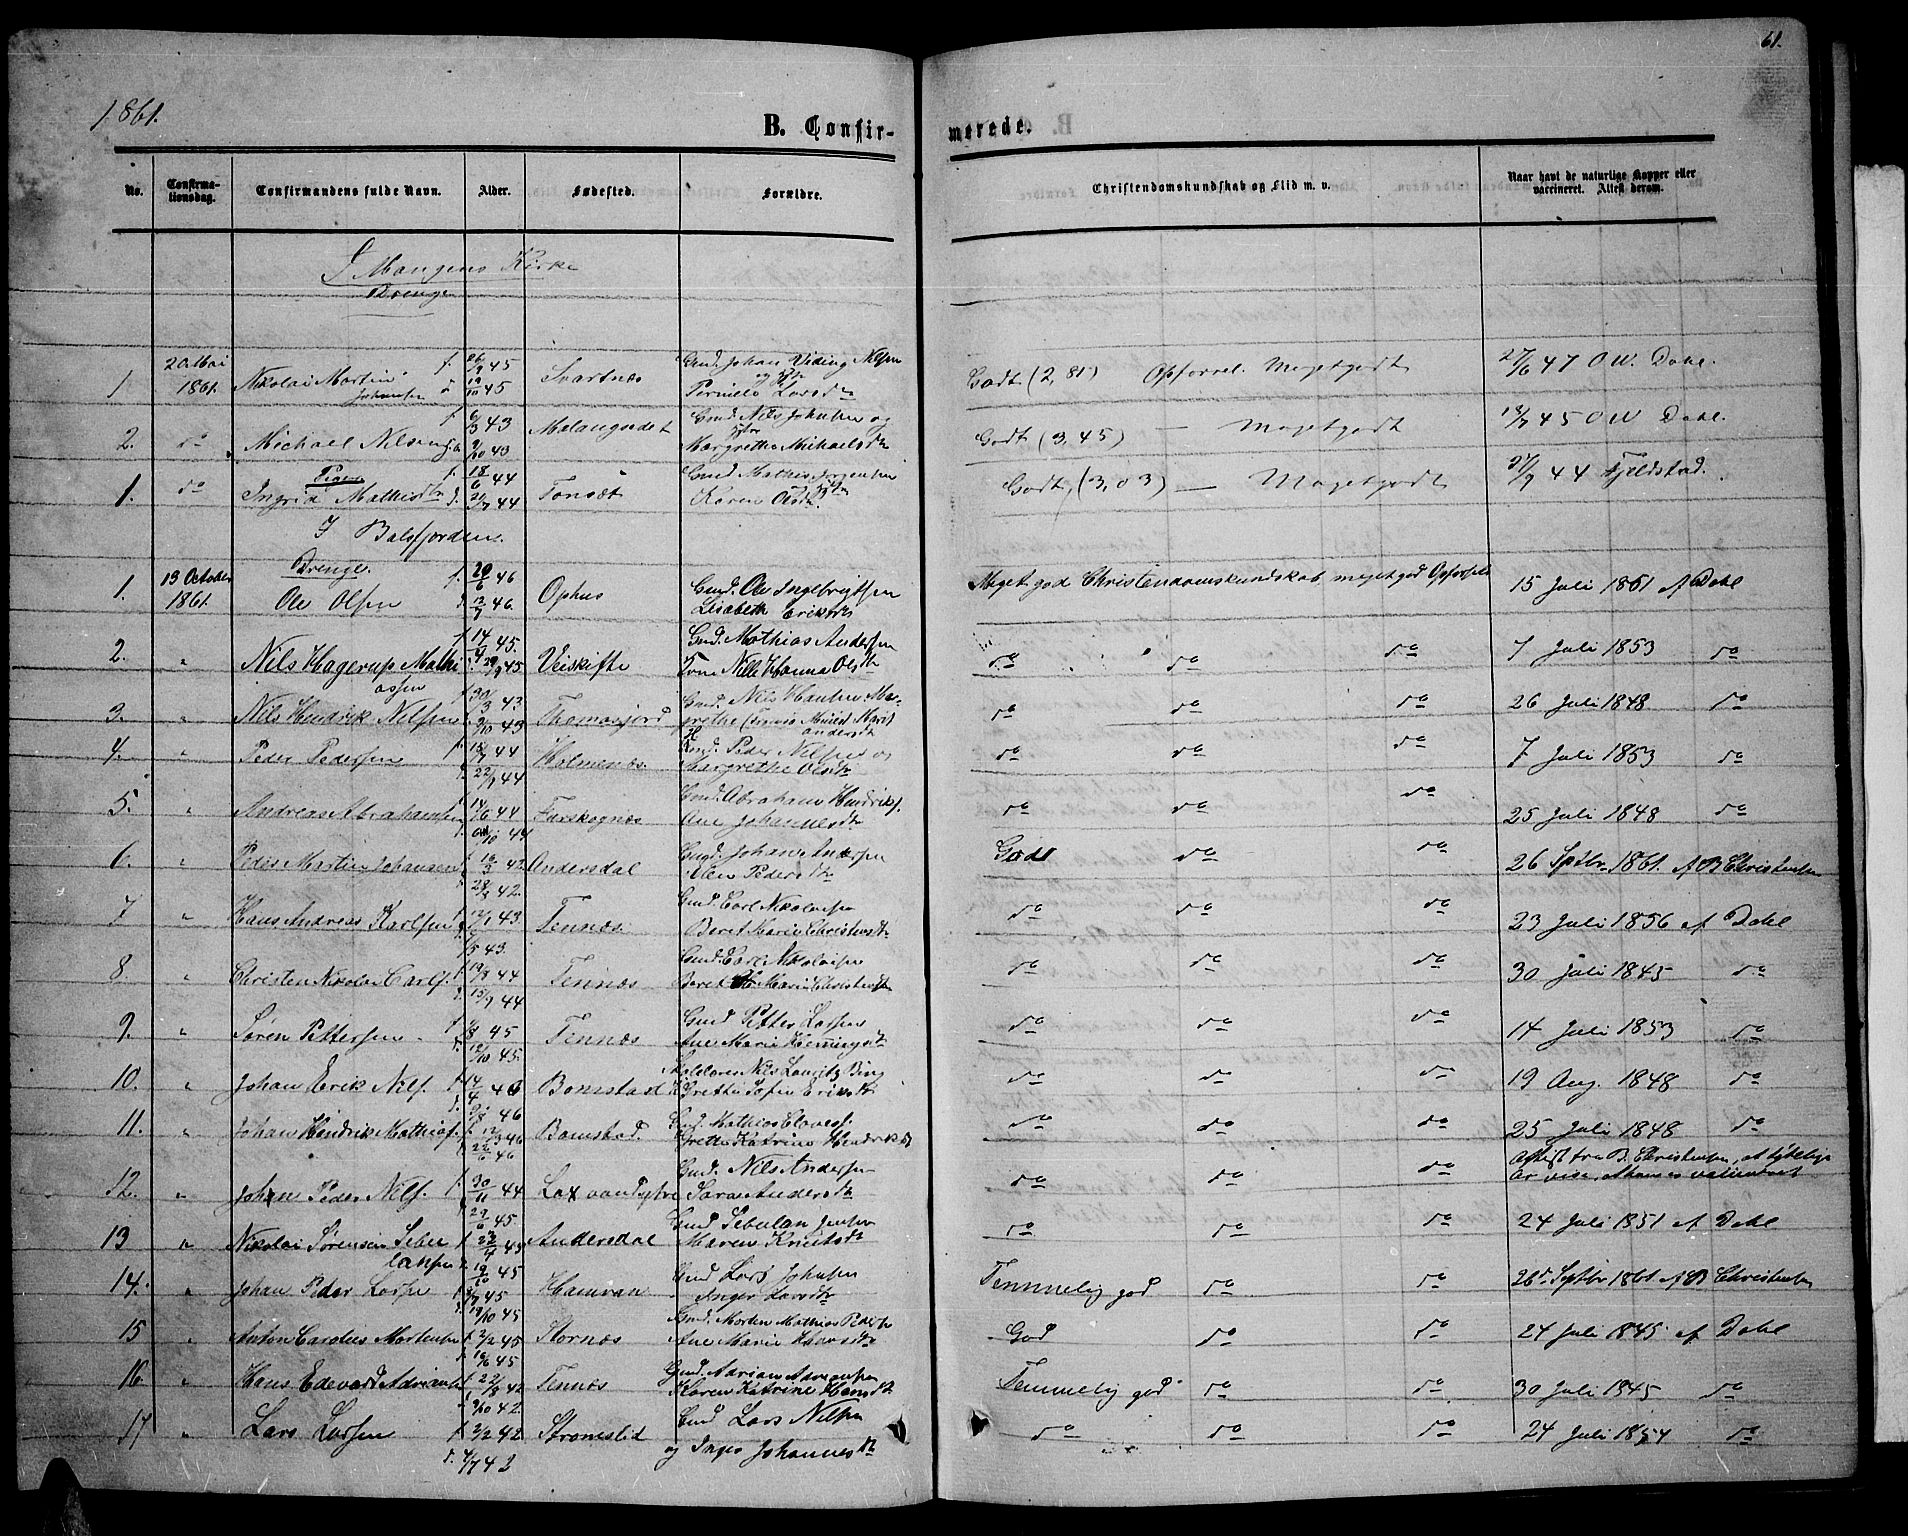 61.
1861.
B. Confir-
merede.
No.
Confirma-
tionsdag.
Confirmandens fulde Navn.
Alder.
Fødested.
Forældre.
Christendomskundskab og Flid m. v.
Naar havt de naturlige Kopper eller
vaccineret. Attest derom.
I Mangens Kirke
Drenge
1 20 Mai 1861. Nikolai Martin Johansen f. 26/9 45 19/10 45 Svartnæs Gmd. Johan Viding Nilsen og Pernele Larsdtr Godt (2,81) Opførsel Megetgodt 27/6 47 O W. Dahl.
2. do Michael Nilsen f. 6/3 43 9/10 43 Malangseidet Gmd Nils Johnsen og Margrethe Michaelsdtr Godt (3,45) — Megetgodt 45 O W Dahl.
Piger
1. do Ingrid Mathisdtr f. 18/6 44 Tonsæt Gmd Mathis Jørgensen Karen Olsdtr. Godt, (3,03) — Megetgodt 27/9 44 Fjeldstad.
I Balsfjorden.
Drenge.
1. 13 October 1861. Ole Olsen f. 20/6 46 12/7 46. Ophus Gmd. Ole Ingebrigtsen Lisabeth Eriksdtr Meget god Christendomskundskab meget god Opførsel 15 Juli 1861 af Dahl
2. " Nils Hagerup Mathiassen f. 14/9 45. 29/9 45 Veiskifte Gmd. Mathias Andersen Kone Nille Hanna Olsdtr do do do 7 Juli 1853 do
3. " Nils Hendrik Nilsen f. 30/3 43. 9/10 43 Thomasjord Gmd. Nils Hansen Margrethe Andersdtr do do do 26 Juli 1848 do
4. " Peder Pedersen f. 44 22/9 44 Holmenæs. Gmd. Peder Nilsen og Margrethe Olsdtr do do do 7 Juli 1853 do
5. " Andreas Abrahamsen f. 14/6 44 44 Furskognæs Gmd. Abraham Hendriks. Ane Johannesdtr do do do 25 Juli 1848 do
6. " Peder Martin Johansen f. 19/3 42 42. Andersdal Gmd. Johan Andersen Pedersdtr God do do 26 Septbr. 1861. af B Christensen
7 " Hans Andreas Karlsen f. 43. 43. Tennæs Gmd. Carl Nikolaisen Beret Marie Christensdtr do do do 23 Juli 1856 af Dahl
8. " Christen Nikolai Carls. f. 19/8 44 15/9 44 Tennæs Gmd. Carl Nikolaisen Beret Marie Christensdtr do do do 30 Juli 1845 do
9. " Søren Pettersen f. 45 12/10 45. Tennæs Gmd Petter Larsen Ane Marie Hemmingsdtr do do do 14 Juli 1853 do
10. " Johan Erik Nils. f. 14/4 46 46 Bomstad Nils Lauritz Ding Grethe Sofie Eriksdtr do do do 19 Aug. 1848 do
11. " Johan Hendrik Mathias. f. 12/3 46 22/6 46 Bomstad. Gmd. Mathias Olaves. Grethe Katrine Hendriksdtr do do do 25 Juli 1848 do
12. " Johan Peder Nils. f. 30/11 44 29/6 45. Laxvandystre Gmd. Nils Andersen Sara Andersdtr do do do Attest fra B. Christensen, at tydelige ar vise, at han er vaccineret
13 " Nikolai Sørensen Sebulansen f. 45 19/10 45 Andersdal Gmd Sebulan Jensen Maren Knutsdtr do do do 24 Juli 1851 af Dahl
14. " Johan Peder Larsen 45 19/10 45 Hamvan Gmd Lars Johnsen Inger Larsdtr Temmelig god do do 26 Septbr 1861 af B Christensen
15 " Anton Carolius Mortensen f. 2/2 45 16/6 45 Stornæs Gmd. Morten Mathias Peders. Ane Marie Hansdtr God do do 24 Juli 1845 af Dahl
16. " Hans Edevard Adrians. f. 22/8 42 9/10 42. Tennæs Gmd. Adrian Adriansen Karen Katrine Hansdtr Temmelig god do do 30 Juli 1845 do
17 " Lars Larsen f. 2/2 42 4/7 42 Strømslid Gmd Lars Nilsen og Inger Johannesdtr do do do 24 Juli 1854 do